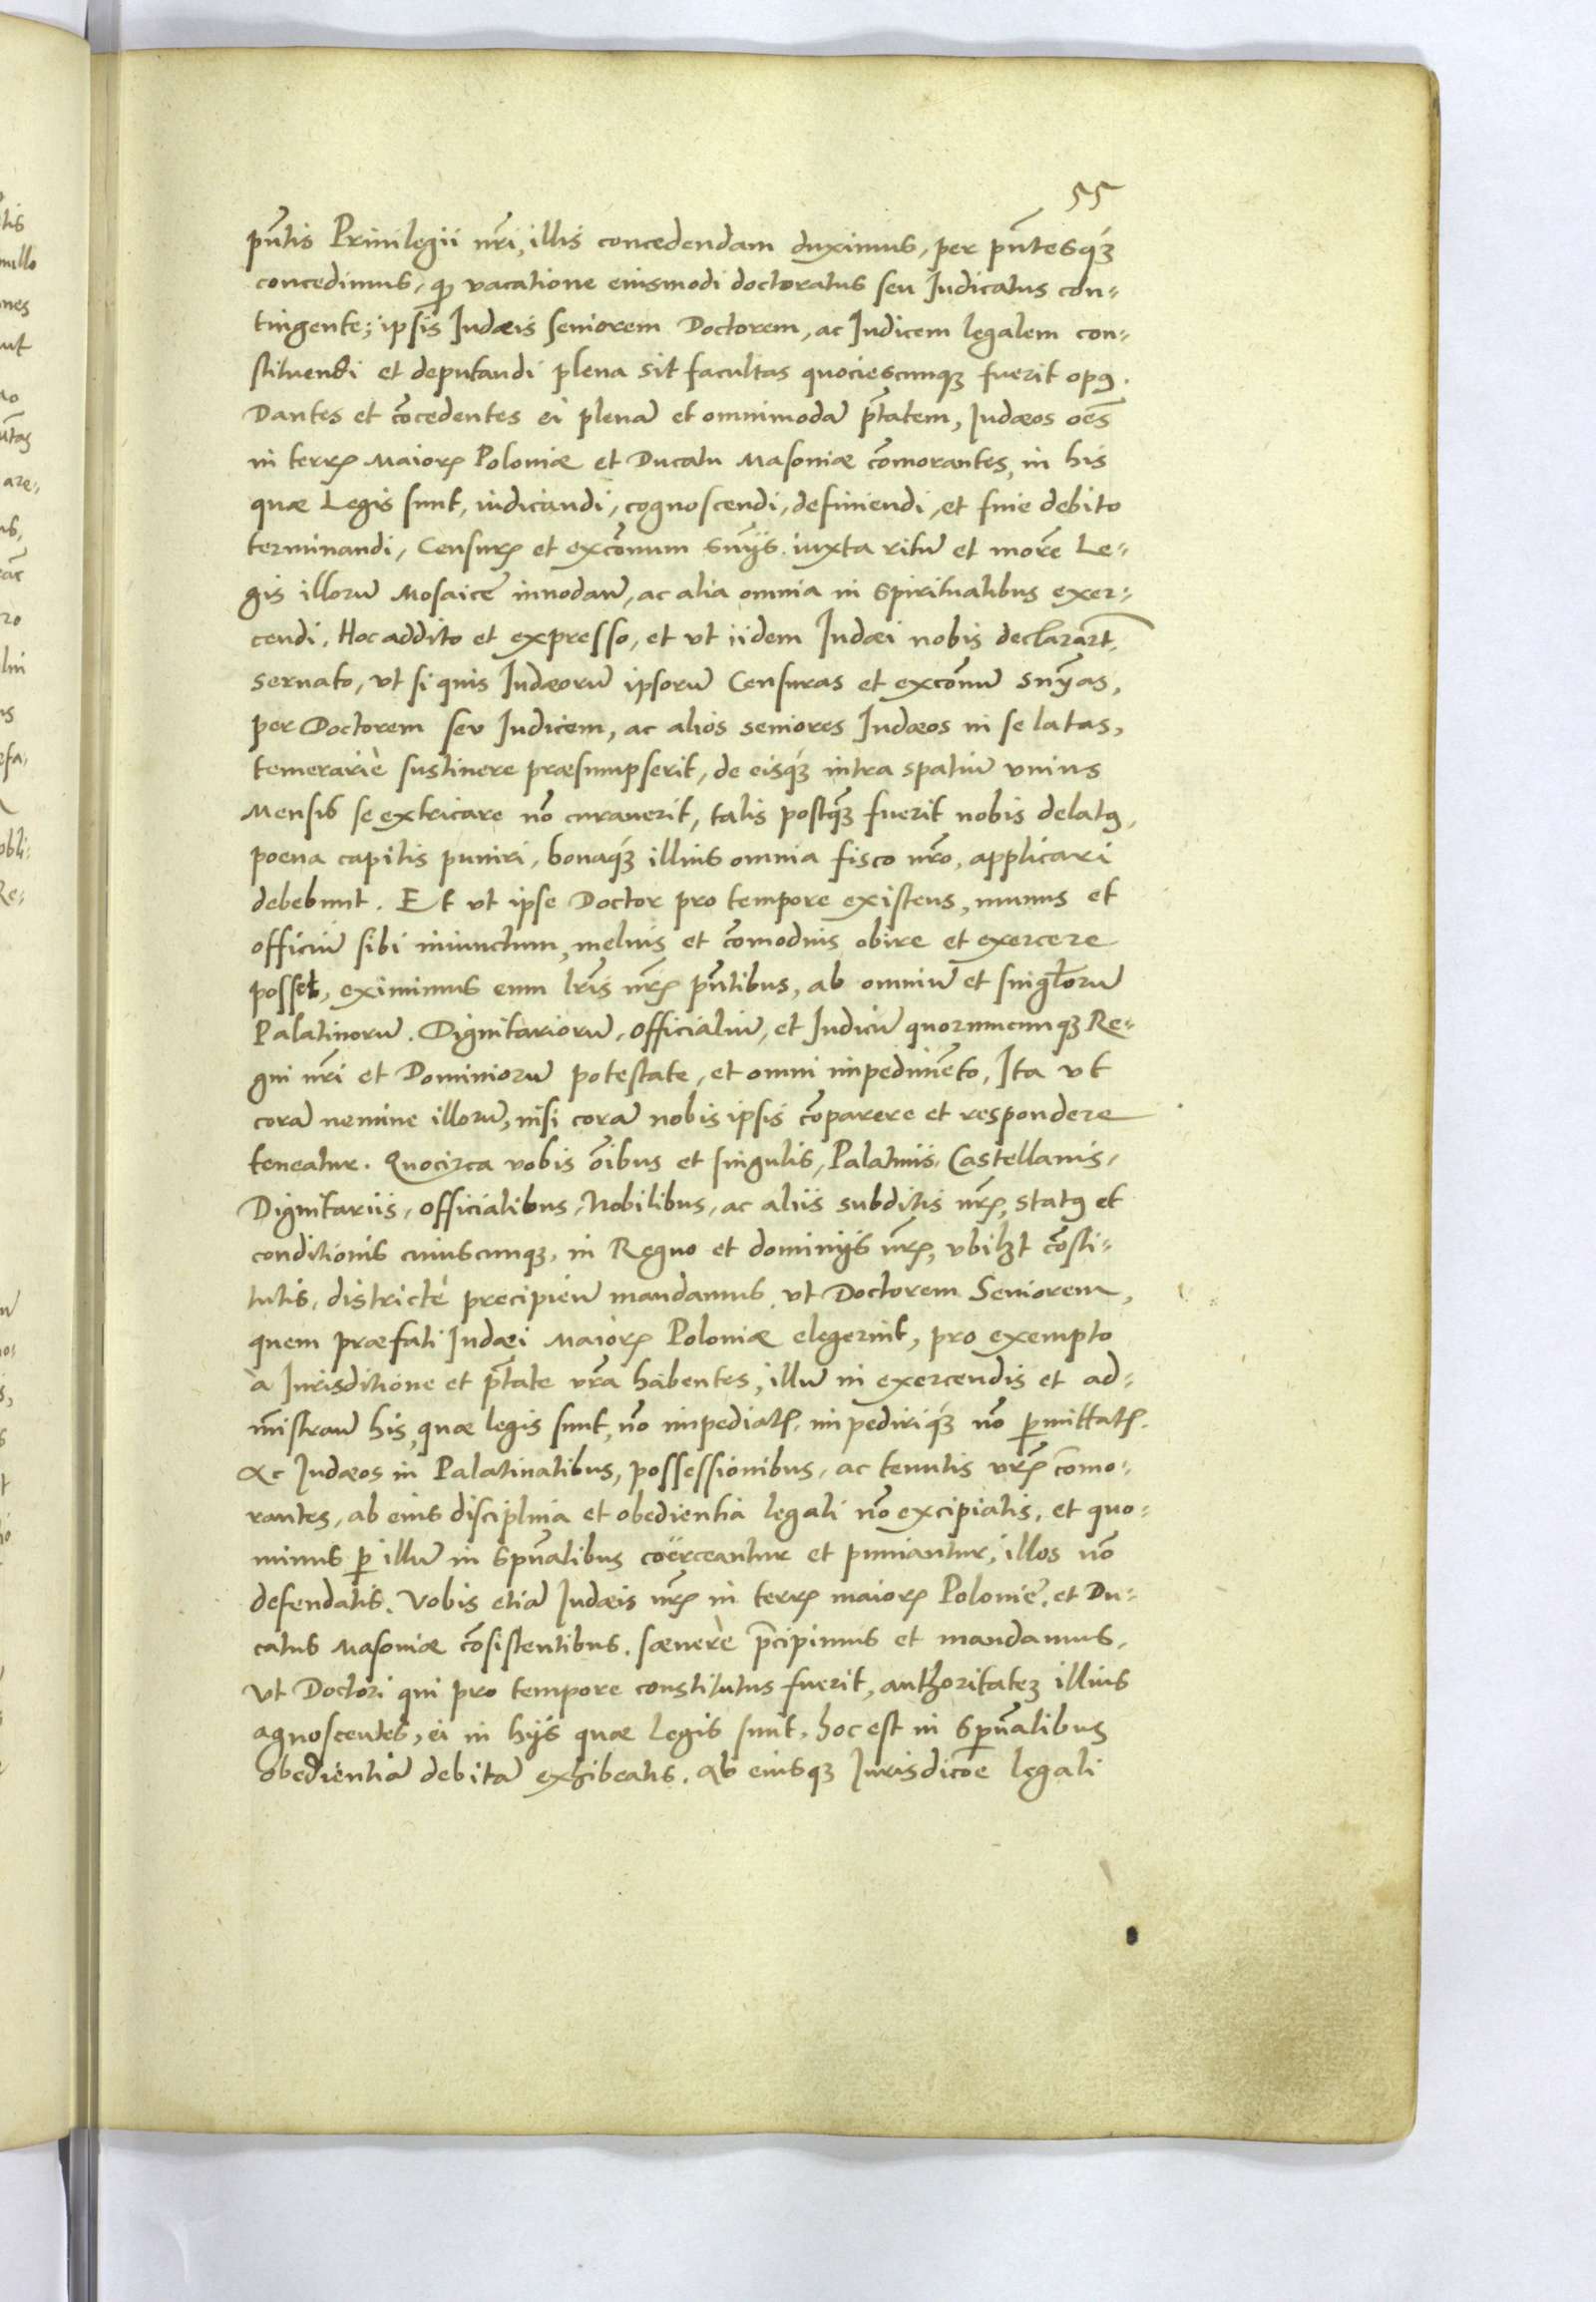 55
pñtis Priuilegii nr̃i, illis concedendam duximus, per pñtesqꝫ
concedimus, qꝫ vacatione eiusmodi doctoratus seu Iudicatus con-
tingente; ipsis Iudæis seniorem Doctorem, ac Iudicem legalem con-
stituendi et deputandi plena sit facultas quociescunqꝫ fuerit opꝰ.
Dantes et cõcedentes ei plenã et omnimodã ptãtem, Iudæos oẽs
in terrꝭ Maiorꝭ Poloniæ et Ducatu Masoniæ cõmorantes, in his
quæ Legis sunt, iudicandi, cognoscendi, definiendi, et fine debito
terminandi, Censurꝭ et excõmum sñijs iuxta ritũ et morẽ Le-
gis illorũ Mosaicę innodañ, ac alia omnia in spiritualibus exer-
cendi. Hoc addito et expresso, et vt iidem Iudæi nobis declarart̃
seruato, vt si quis Iudæorũ ipsorũ Censuras et excõmũ sñyas,
per Doctorem seu Iudicem, ac alios seniores Iudæos in se latas,
temerariè sustinere præsumpserit, de eisqꝫ intra spatiũ vnius
Mensis se extricare nõ curauerit, talis postqꝫ̃ fuerit nobis delatꝰ,
poena capitis puniri, bonaqꝫ illius omnia fisco nr̃o, applicari
debebunt. Et vt ipse Doctor pro tempore existens, munus et
officiũ sibi iniunctum, melius et cõmodius obire et exercere
posset, eximimus eum lr̃is nr̃ꝭ pñtibus, ab omniũ et singl̃orũ
Palatinorũ. Dignitariorũ, officialiũ, et Iudicũ quorumcunqꝫ Re-
gni nr̃i et Dominiorũ potestate, et omni impedimẽto, Ita vt
corã nemine illorũ, nisi corã nobis ipsis cõparere et respondere
teneatur. Quocirca vobis õibus et singulis, Palatinis, Castellanis,
Dignitariis, officialibus, Nobilibus, ac aliis subditis nr̃ꝭ, statꝰ et
conditionis cuiuscunqꝫ, in Regno et dominijs nr̃ꝭ, vbilꝫt cõsti-
tutis, districtè precipieñ mandamus, vt Doctorem Seniorem,
quem præfati Iudæi Maiorꝭ Poloniæ elegerint, pro exempto
à Iurisditione et ptãte vr̃a habentes, illũ in exercendis et ad-
mĩstrañ his, quæ legis sunt, nõ impediatꝭ, impediriqꝫ nõ ꝑmittatꝭ.
Ac Iudæos in Palatinatibus, possessionibus, ac tenutis vr̃ꝭ cõmo-
rantes, ab eius disciplina et obedientia legali nõ excipiatis, et quo-
minus ꝑ illũ in spũalibus coërceantur et puniantur, illos nõ
defendatis. Vobis etiã Iudæis nr̃ꝭ in terrꝭ maiorꝭ Polonię, et Du-
catus Masoniæ cõsistentibus, sæuerè p̃cipimus et mandamus,
vt Doctori qui pro tempore constitutus fuerit, authoritateꝫ illius
agnoscentes, ei in hijs quæ legis sunt, hoc est in spũalibus
obedientiã debitã exhibeatis. Ab eiusqꝫ Iurisdicõe legali